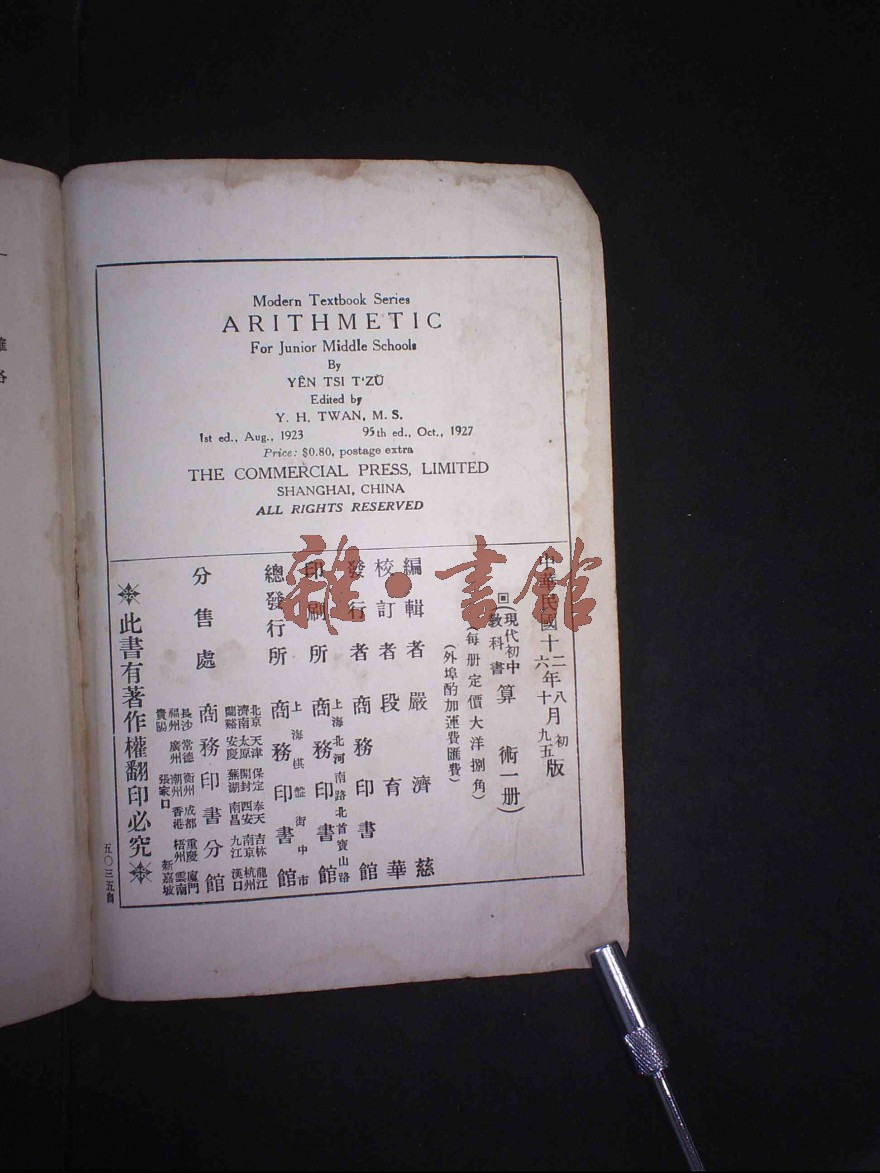 Modern Textbook Series
ARITHMETIC
For Junior Middle Schools
By
YÊN TSI T'ZŬ
Edited by
Y. H. TWAN, M. S.
1st ed., Aug., 1923 95th ed., Oct., 1927
Price: $0.80, postage extra
THE COMMERCIAL PRESS, LIMITED
SHANGHAI, CHINA
ALL RIGHTS RESERVED
雜·書館
中華民國十二年八月初版
十六年十月九五版
回(現代初中教科書算術一册)
(每册定價大洋捌角)
(外埠酌加運費匯費)
編輯者 嚴濟慈
校訂者 段育華
發行者 商務印書館
印刷所 上海北河南路北首寶山路 商務印書館
總發行所 上海棋盤街中市 商務印書館
分售處 商務印書分館
北京 天津 保定 奉天 吉林 龍江
濟南 太原 開封 西安 南京 杭州
蘭谿 安慶 蕪湖 南昌 九江 漢口
長沙 常德 衡州 成都 重慶 廈門
福州 廣州 潮州 香港 梧州 雲南
貴陽 張家口 新嘉坡
此書有著作權翻印必究
五〇三五自